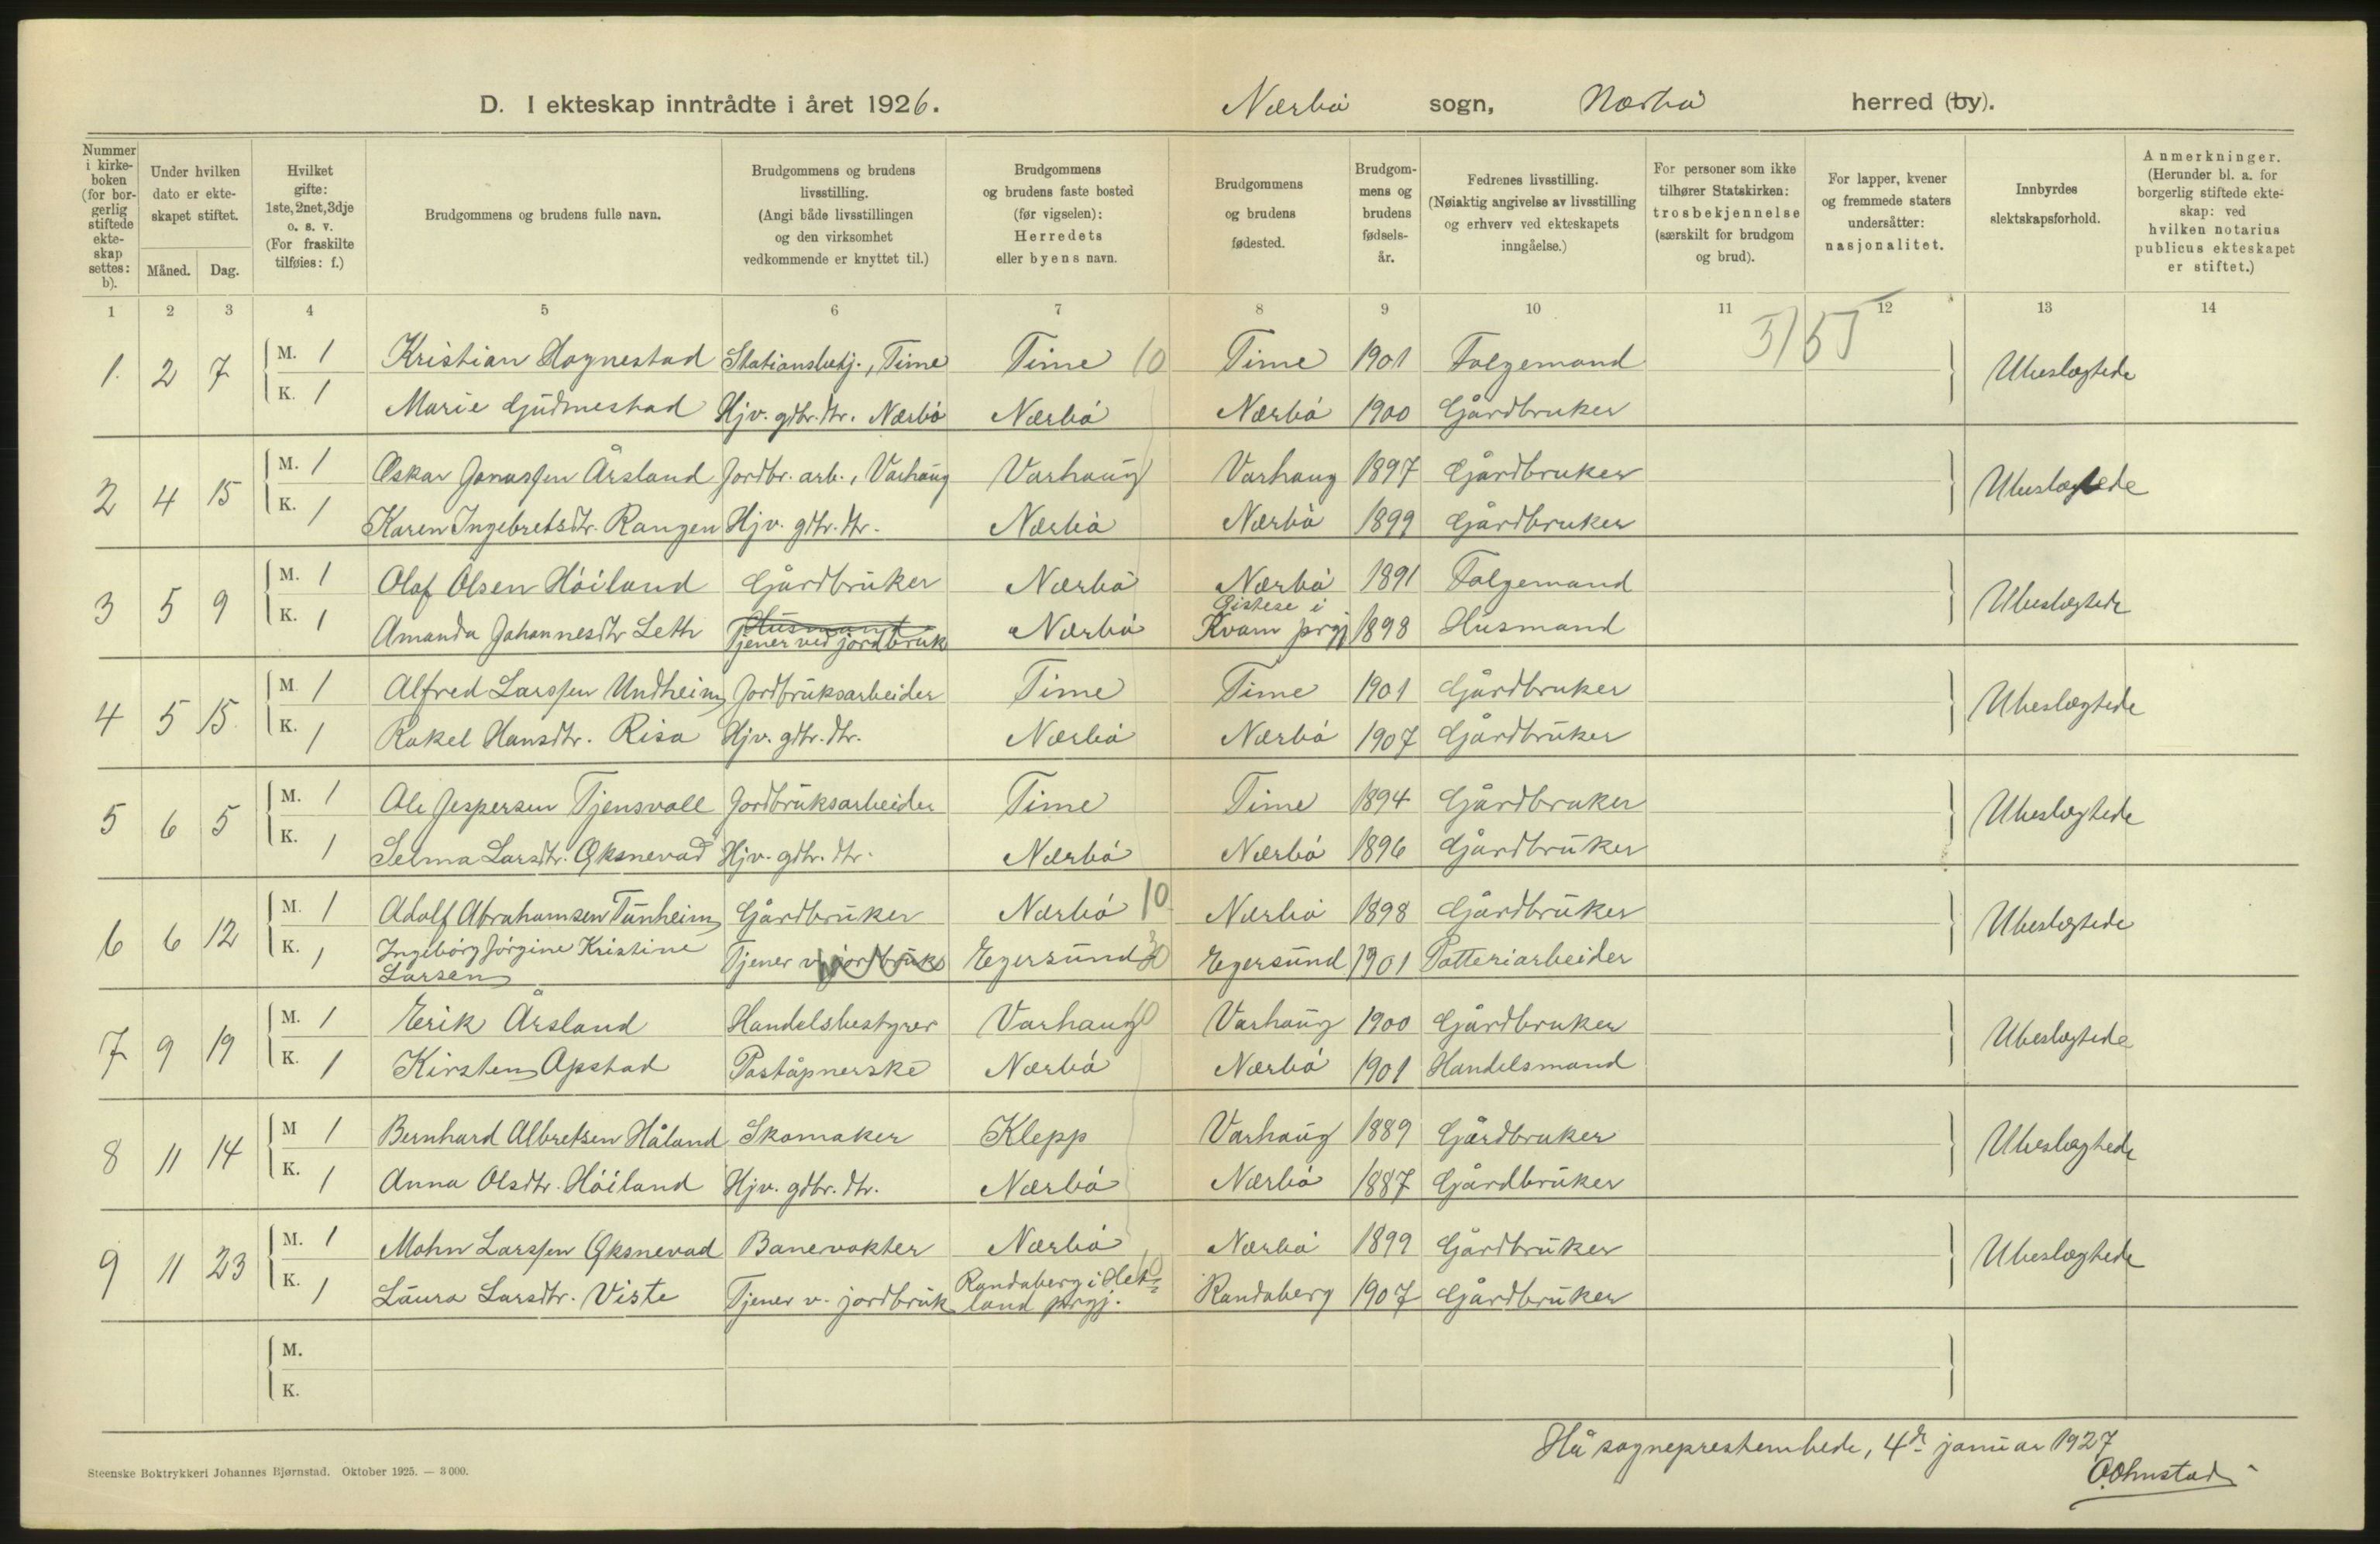 D. I ekteskap inntrådte i året 1926. Nærbö sogn, Nærbö herred (by).
Nummer i kirke-boken (for bor-gerlig stiftede ekte-skap settes: b).
Under hvilken dato er ekte-skapet stiftet.
Måned. Dag.
Hvilket gifte: 1ste, 2net, 3dje o. s. v. (For fraskilte tilføies: f.)
Brudgommens og brudens fulle navn.
Brudgommens og brudens livsstilling. (Angi både livsstillingen og den virksomhet vedkommende er knyttet til.)
Brudgommens og brudens faste bosted (før vigselen): Herredets eller byens navn.
Brudgommens og brudens fødested.
Brudgom-mens og brudens fødsels-år.
Fedrenes livsstilling. (Nøiaktig angivelse av livsstilling og erhverv ved ekteskapets inngåelse.)
For personer som ikke tilhører Statskirken: trosbekjennelse (særskilt for brudgom og brud).
For lapper, kvener og fremmede staters undersåtter: nasjonalitet.
Innbyrdes slektskapsforhold.
Anmerkninger. (Herunder bl. a. for borgerlig stiftede ekte-skap: ved hvilken notarius publicus ekteskapet er stiftet.)
1 2 3 4 5 6 7 8 9 10 11 12 13 14
1. 2 7 M. 1 Kristian Hognestad Stationsbetj., Time Time 10 Time 1901 Folgemand Ubeslægtede
K. 1 Marie Gudmestad Hjv. gdbr. dtr. Nærbö Nærbö Nærbö 1900 Gårdbruker
2 4 15 M. 1 Oskar Jonassen Årsland Jordbr. arb., Varhaug Varhaug Varhaug 1897 Gårdbruker Ubeslægtede
K. 1 Karen Ingebretsdtr. Rangen Hjv. gdbr. dtr. Nærbö Nærbö 1899 Gårdbruker
3 5 9 M. 1 Olaf Olsen Höiland Gårdbruker Nærbö Nærbö 1891 Folgemand Ubeslægtede
K. 1 Amanda Johannesdtr Leth Husmand Tjener ved jordbruk Nærbö Östese i Kvam prgj 1898 Husmand
4 5 15 M. 1 Alfred Larssen Undheim Jordbruksarbeider Time Time 1901 Gårdbruker Ubeslægtede
K. 1 Rakel Hansdtr. Risa Hjv. gdbr. dtr. Nærbö Nærbö 1907 Gårdbruker
5 6 5 M. 1 Ole Jespersen Tjensvoll Jordbruksarbeider Time Time 1894 Gårdbruker Ubeslægtede
K. 1 Selma Larsdtr. Öksnevad Hjv. gdbr. dtr. Nærbö Nærbö 1896 Gårdbruker
6 6 12 M. 1 Adolf Abrahamsen Tunheim Gårdbruker Nærbö 10 Nærbö 1898 Gårdbruker Ubeslægtede
K. 1 Ingeborg Jörgine Kristine Larsen Tjener v. jordbruk Egersund Egersund 1901 Potteriarbeider
7 9 19 M. 1 Erik Årsland Handelsbestyrer Varhaug Varhaug 1900 Gårdbruker Ubeslægtede
K. 1 Kirsten Opstad Poståpnerske Nærbö Nærbö 1901 Handelsmand
8 11 14 M 1 Bernhard Albretsen Håland Skomaker Klepp Varhaug 1889 Gårdbruker Ubeslægtede
K. 1 Anna Olsdtr. Höiland Hjv. gdbr. dtr. Nærbö Nærbö 1887 Gårdbruker
9 11 23 M. 1 Mohn Larssen Öksnevad Banevokter Nærbö Nærbö 1899 Gårdbruker Ubeslægtede
K. 1 Laura Larsdtr. Viste Tjener v. jordbruk Randaberg i Het=land prgj. Randaberg 1907 Gårdbruker
M.
K.
Hå sogneprestembede, 4de januar 1927
Steenske Boktrykkeri Johannes Bjørnstad. Oktober 1925. — 3 000.